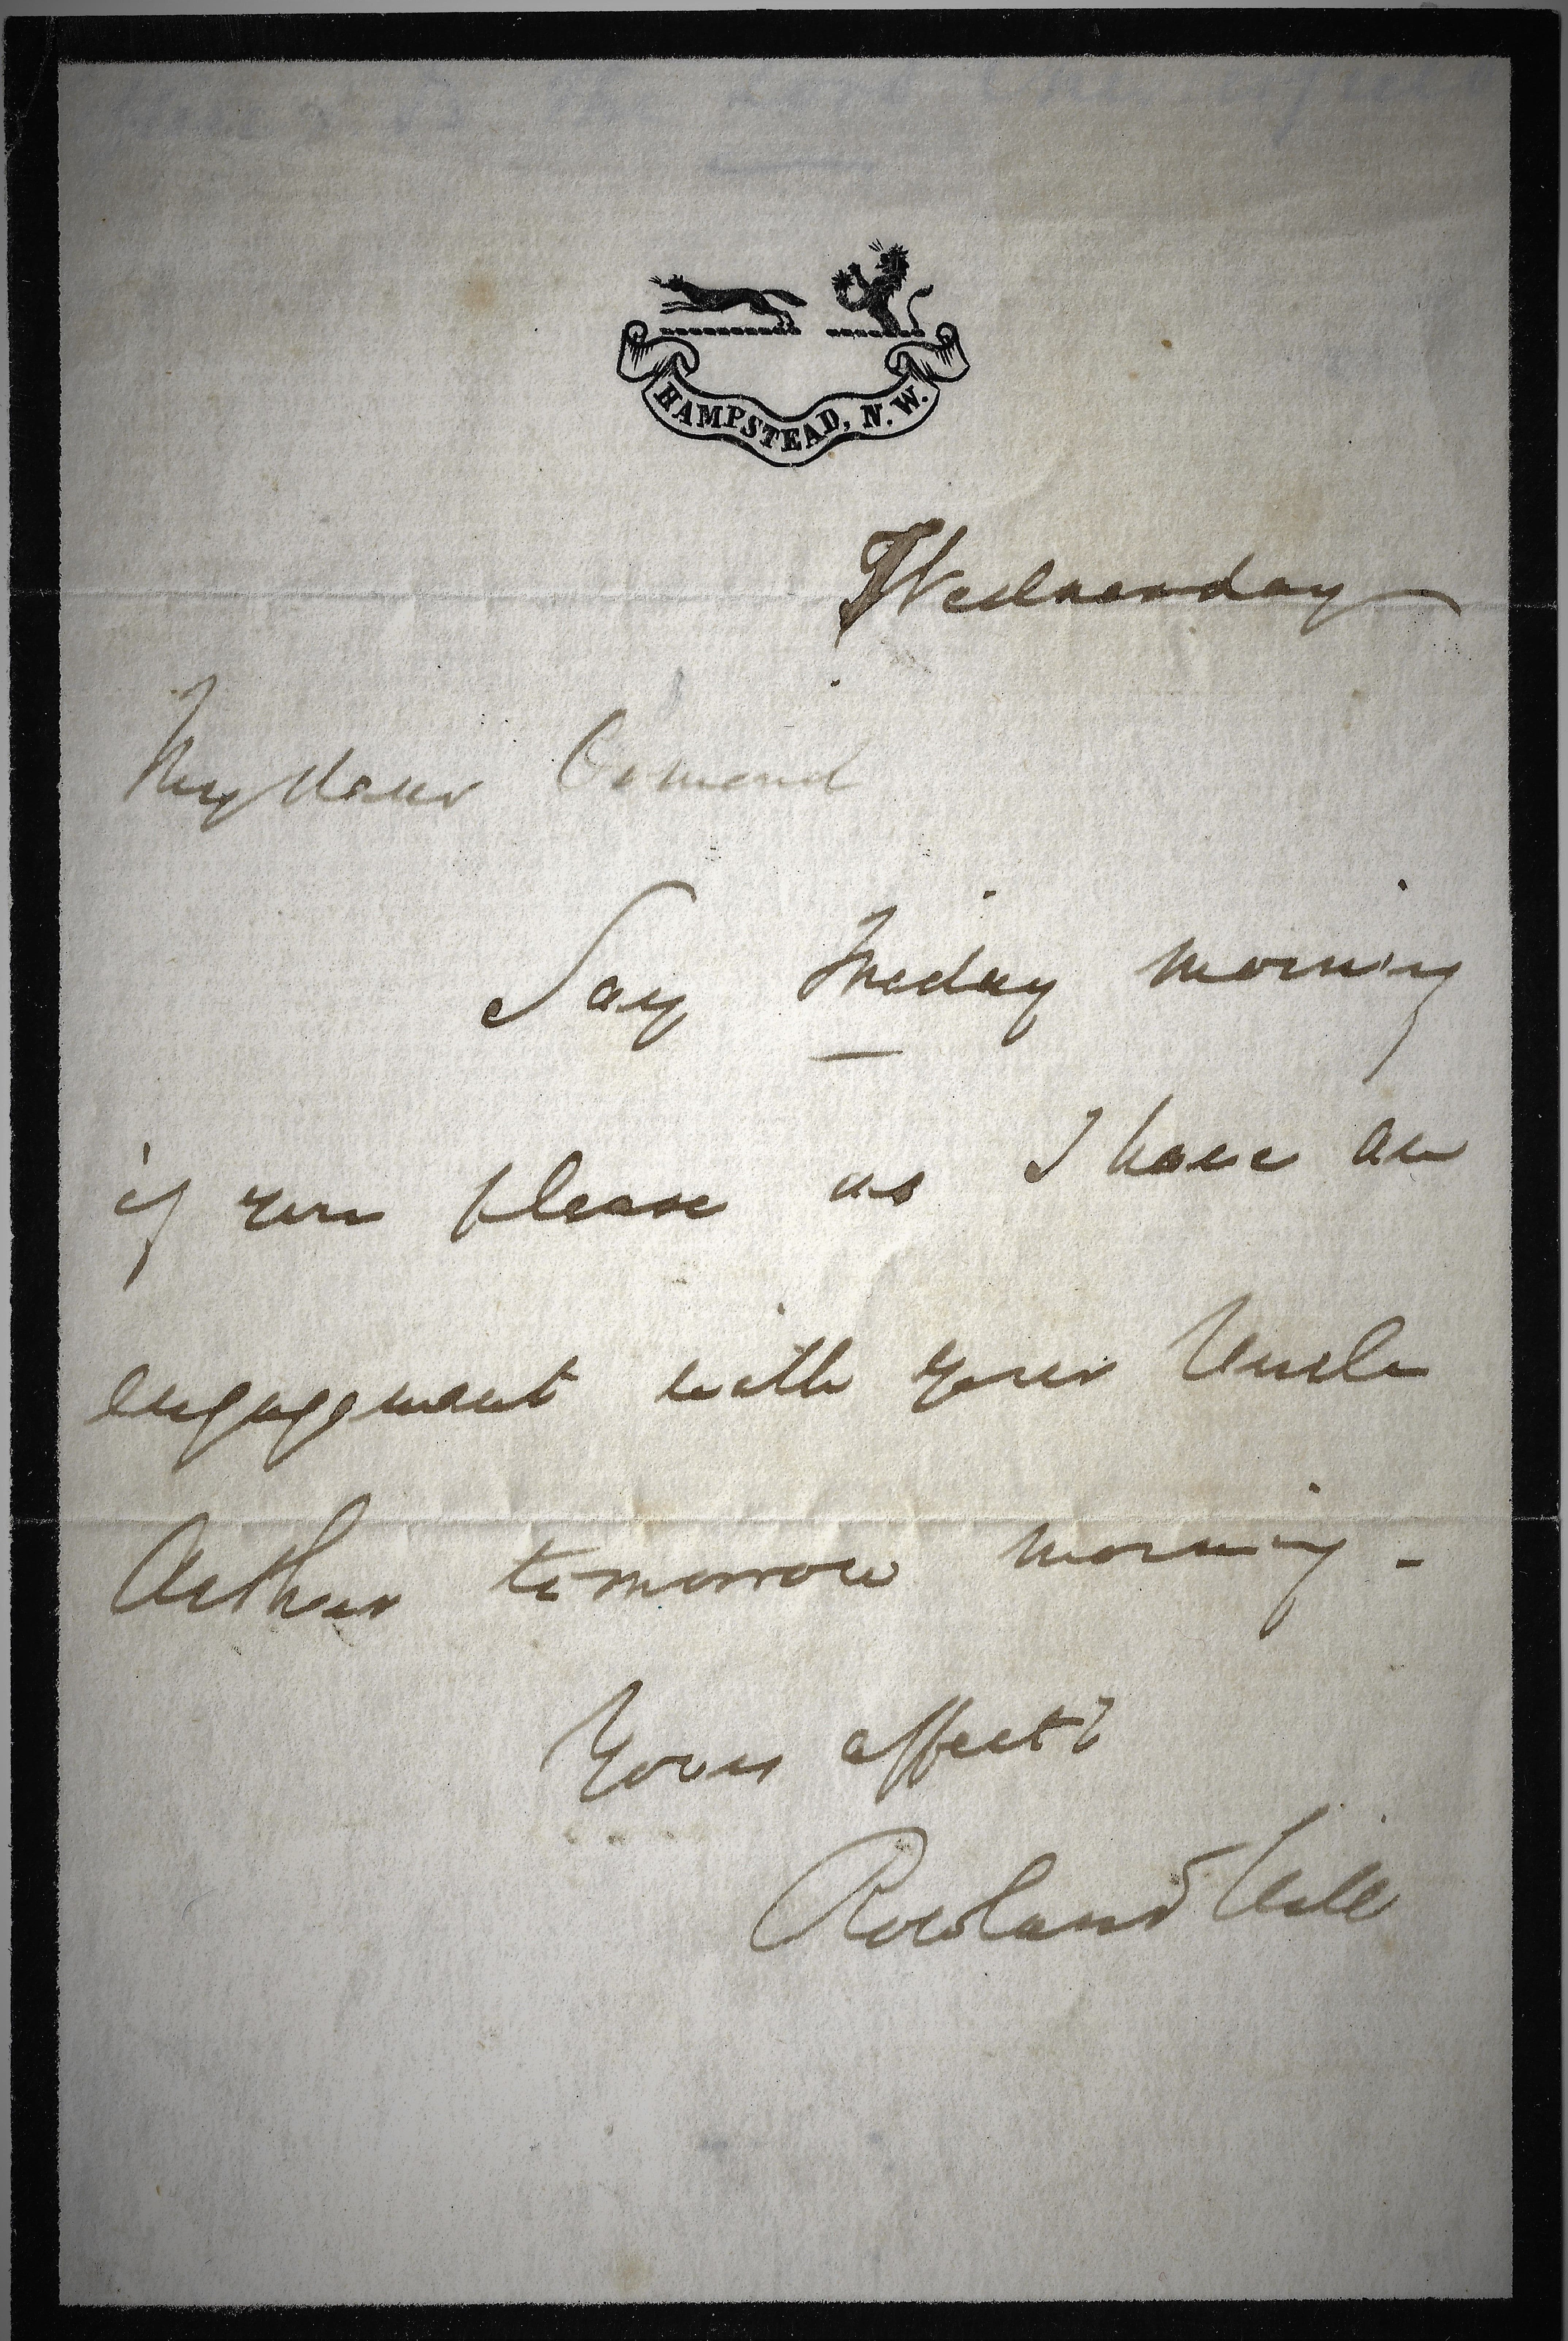 HAMPSTEAD, N.W.
Wednesday
My dear Osmond
Say Friday morning
if you please as I have an
engagement with your Uncle
Arthur tomorrow morning -
Yours affectly
Rowland Hill